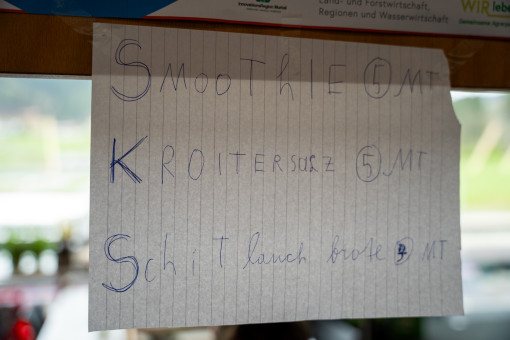 Land- und Forstwirtschaft,
Regionen und Wasserwirtschaft
WIR lebe
SMOOTHIE 5 MT
KROITERSOLZ 5 MT
SchiTlauch brote 4 MT